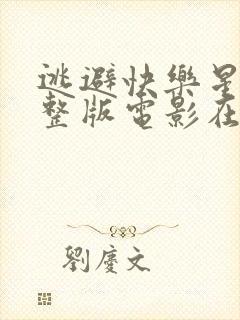 逃避快樂星
整版電影在
劉慶文